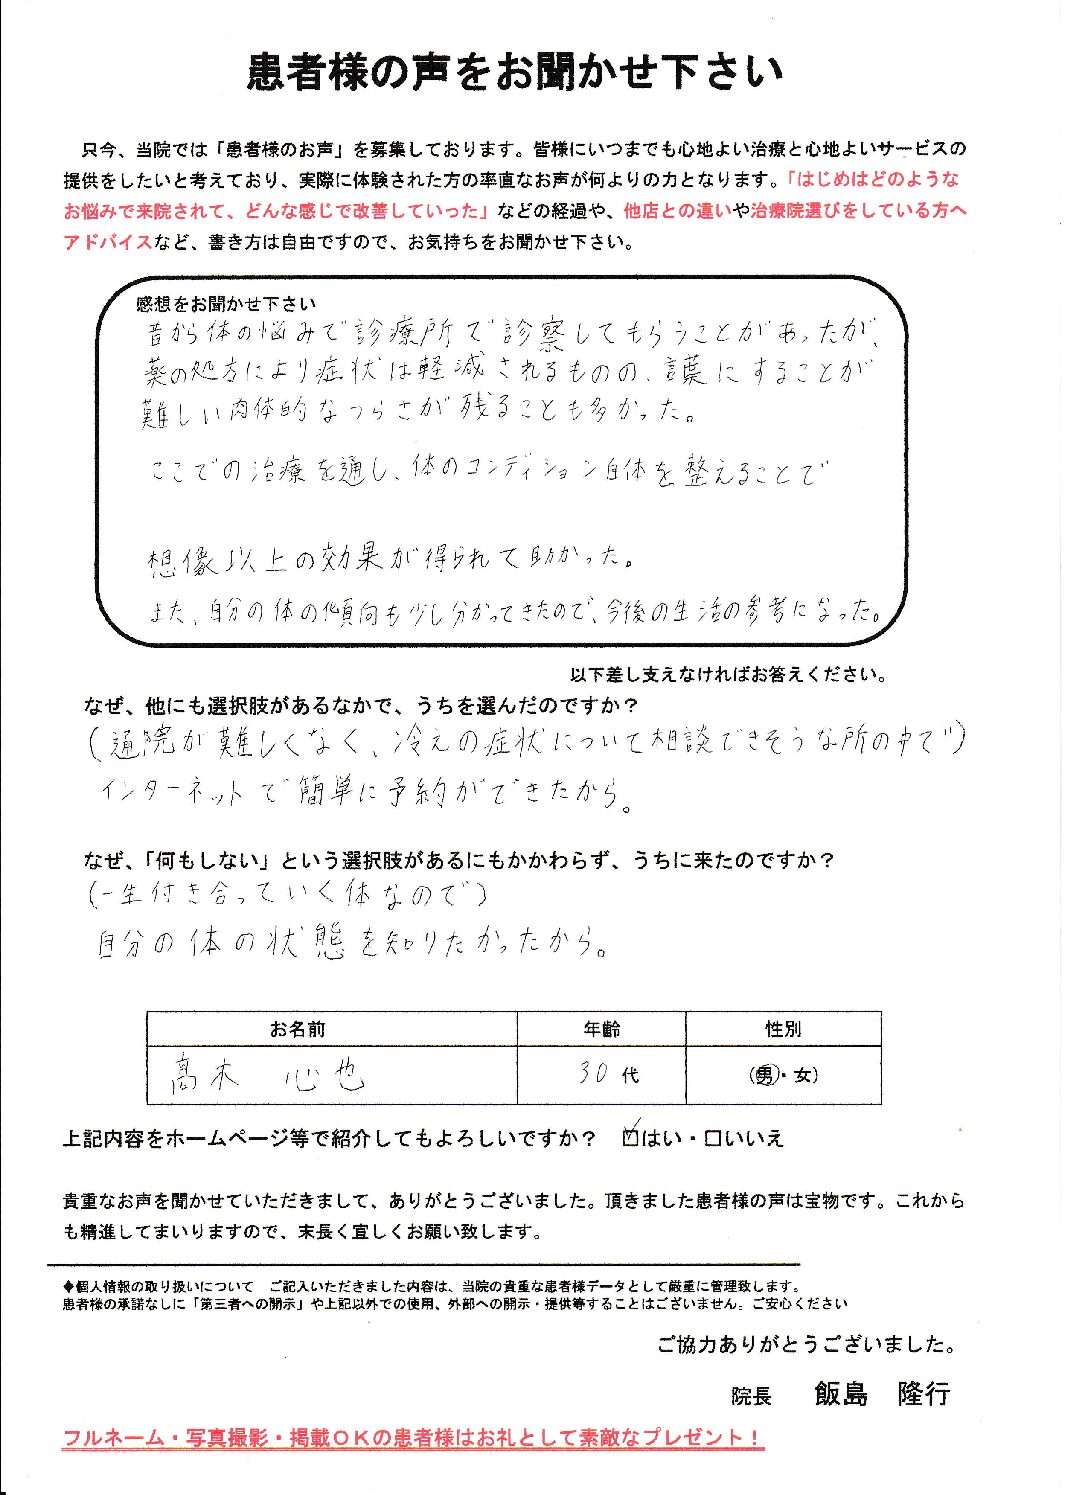 患者様の声をお聞かせ下さい
只今、当院では「患者様のお声」を募集しております。皆様にいつまでも心地よい治療と心地よいサービスの
提供をしたいと考えており、実際に体験された方の率直なお声が何よりの力となります。「はじめはどのような
お悩みで来院されて、どんな感じで改善していった」などの経過や、他店との違いや治療院選びをしている方へ
アドバイスなど、書き方は自由ですので、お気持ちをお聞かせ下さい。
感想をお聞かせ下さい
昔から体の悩みで診療所で診察してもらうことがあったが、
薬の処方により症状は軽減されるものの、言葉にすることが
難しい肉体的なつらさが残ることも多かった。
ここでの治療を通し、体のコンディション自体を整えることで
想像以上の効果が得られて助かった。
また、自分の体の傾向も少し分かってきたので、今後の生活の参考になった。
以下差し支えなければお答えください。
なぜ、他にも選択肢があるなかで、うちを選んだのですか？
(通院が難しくなく、冷えの症状について相談できそうな所の中で)
インターネットで簡単に予約ができたから。
なぜ、「何もしない」という選択肢があるにもかかわらず、うちに来たのですか？
(一生付き合っていく体なので)
自分の体の状態を知りたかったから。
お名前 年齢 性別
髙木 心也 30代 (男・女)
上記内容をホームページ等で紹介してもよろしいですか？ ☑はい・□いいえ
貴重なお声を聞かせていただきまして、ありがとうございました。頂きました患者様の声は宝物です。これから
も精進してまいりますので、末長く宜しくお願い致します。
◆個人情報の取り扱いについて ご記入いただきました内容は、当院の貴重な患者様データとして厳重に管理致します。
患者様の承諾なしに「第三者への開示」や上記以外での使用、外部への開示・提供等することはございません。ご安心ください
ご協力ありがとうございました。
院長 飯島 隆行
フルネーム・写真撮影・掲載ＯＫの患者様はお礼として素敵なプレゼント！